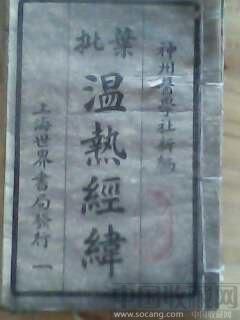 神州醫學社新編
葉批
溫熱經緯
上海世界書局發行
一
www.socang.com 中国收藏网
中国收藏网